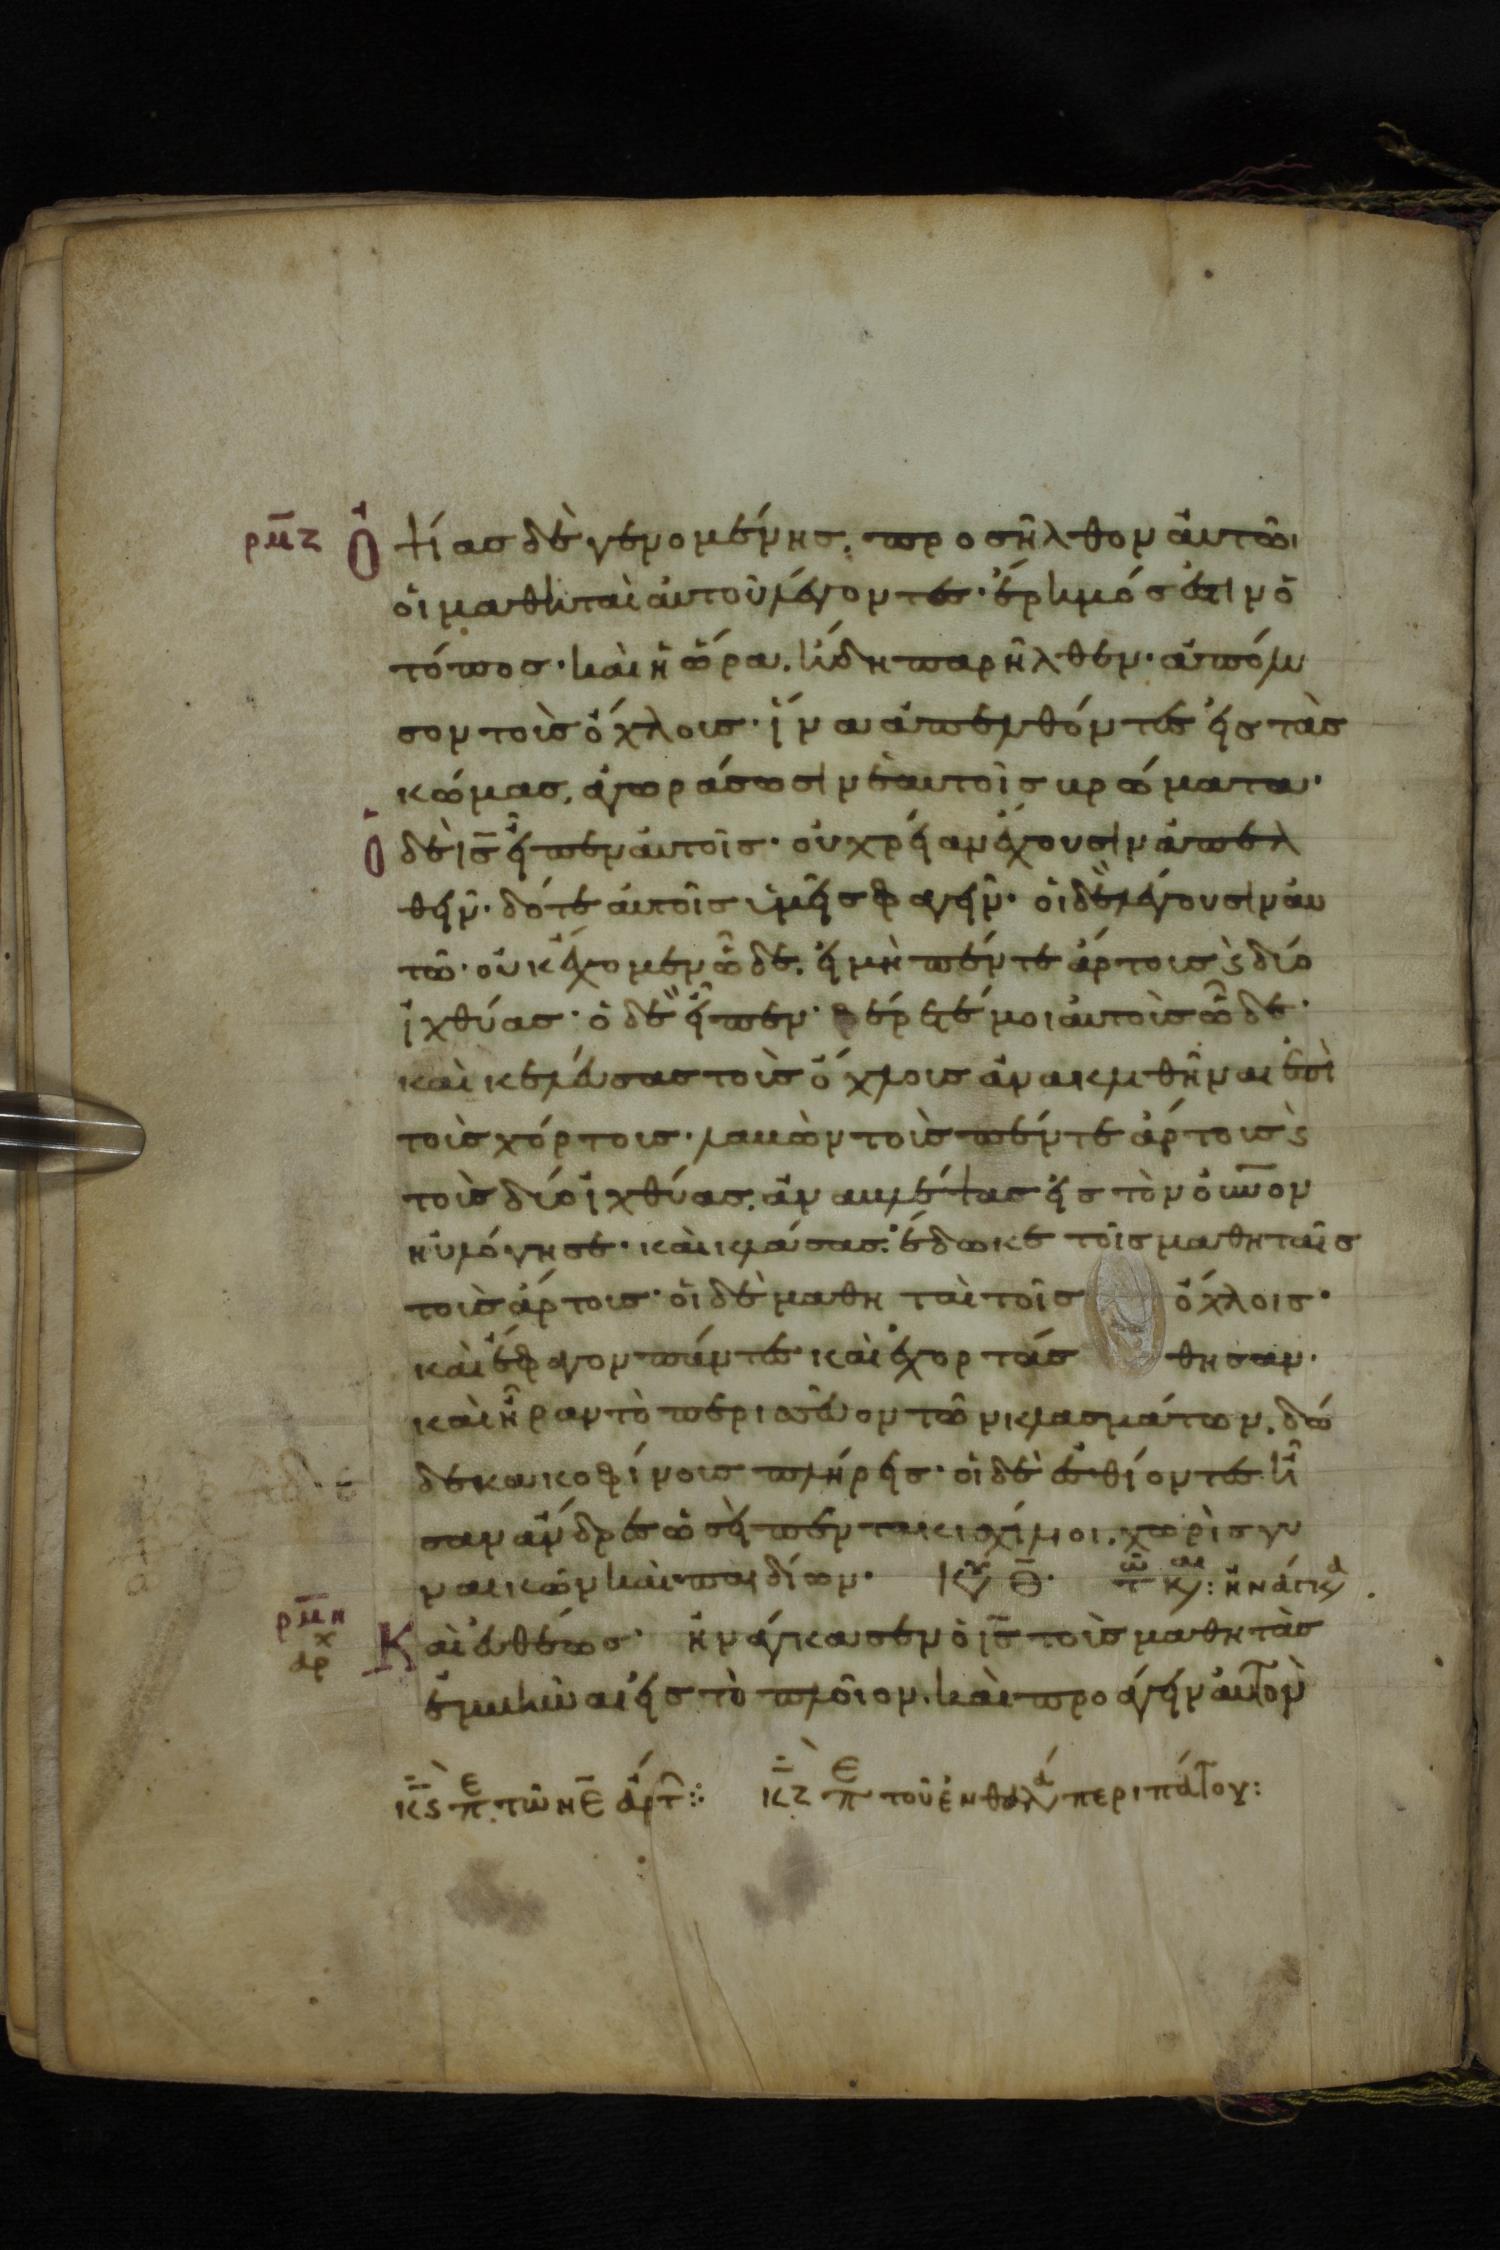 ρμζ Ὀψίας δὲ γενομένης, προσῆλθον αὐτῶι
οἱ μαθηταὶ αὐτοῦ λέγοντες· ἔρημός ἐστιν ὁ
τόπος· καὶ ἡ ὥρα, ἤδη παρῆλθεν· ἀπόλυ
σον τοὺς ὄχλους· ἵνα ἀπελθόντες εἰς τὰς
κώμας, ἀγοράσωσιν ἑαυτοῖς βρώματα·
ὁ δὲ ις εἶπεν αὐτοῖς· οὐ χρείαν ἔχουσιν ἀπελ
θεῖν· δότε αὐτοῖς ὑμεῖς φαγεῖν· οἱ δὲ λέγουσιν αὐ
τῶ· οὐκ ἔχομεν ὧδε, εἰ μὴ πέντε ἄρτους ϗ δύο
ἰχθύας· ὁ δὲ εἶπεν· φέρετέ μοι αὐτοὺς ὧδε·
καὶ κελεύσας τοὺς ὄχλους ἀνακλιθῆναι ἐπὶ
τοὺς χόρτους· λαβὼν τοὺς πέντε ἄρτους ϗ
τοὺς δύο ἰχθύας, ἀναβλέψας εἰς τὸν οὐνον
ηὐλόγησε· καὶ κλάσας· ἔδωκε τοῖς μαθηταῖς
τοὺς ἄρτους· οἱ δὲ μαθηταὶ τοῖς ὄχλοις·
καὶ ἔφαγον πάντες καὶ ἐχορτάσθησαν·
καὶ ἦραν τὸ περισσεῦον τῶν κλασμάτων, δώ
δεκα κοφίνους πλήρεις· οἱ δὲ ἐσθίοντες ἦ
σαν ἄνδρες ὡσεὶ πεντακισχίλιοι, χωρὶς γυ
ναικῶν καὶ παιδίων· Κυ Θ·
ρμη Καὶ εὐθέως· ἠνάγκασεν ὁ ις τοὺς μαθητὰς
ἐμβῆναι εἰς τὸ πλοῖον, καὶ προάγειν αὐτὸν
κϛ πε τῶν ε ἄρτ κζ πε τοῦ ἐν θαλ περιπάτου: